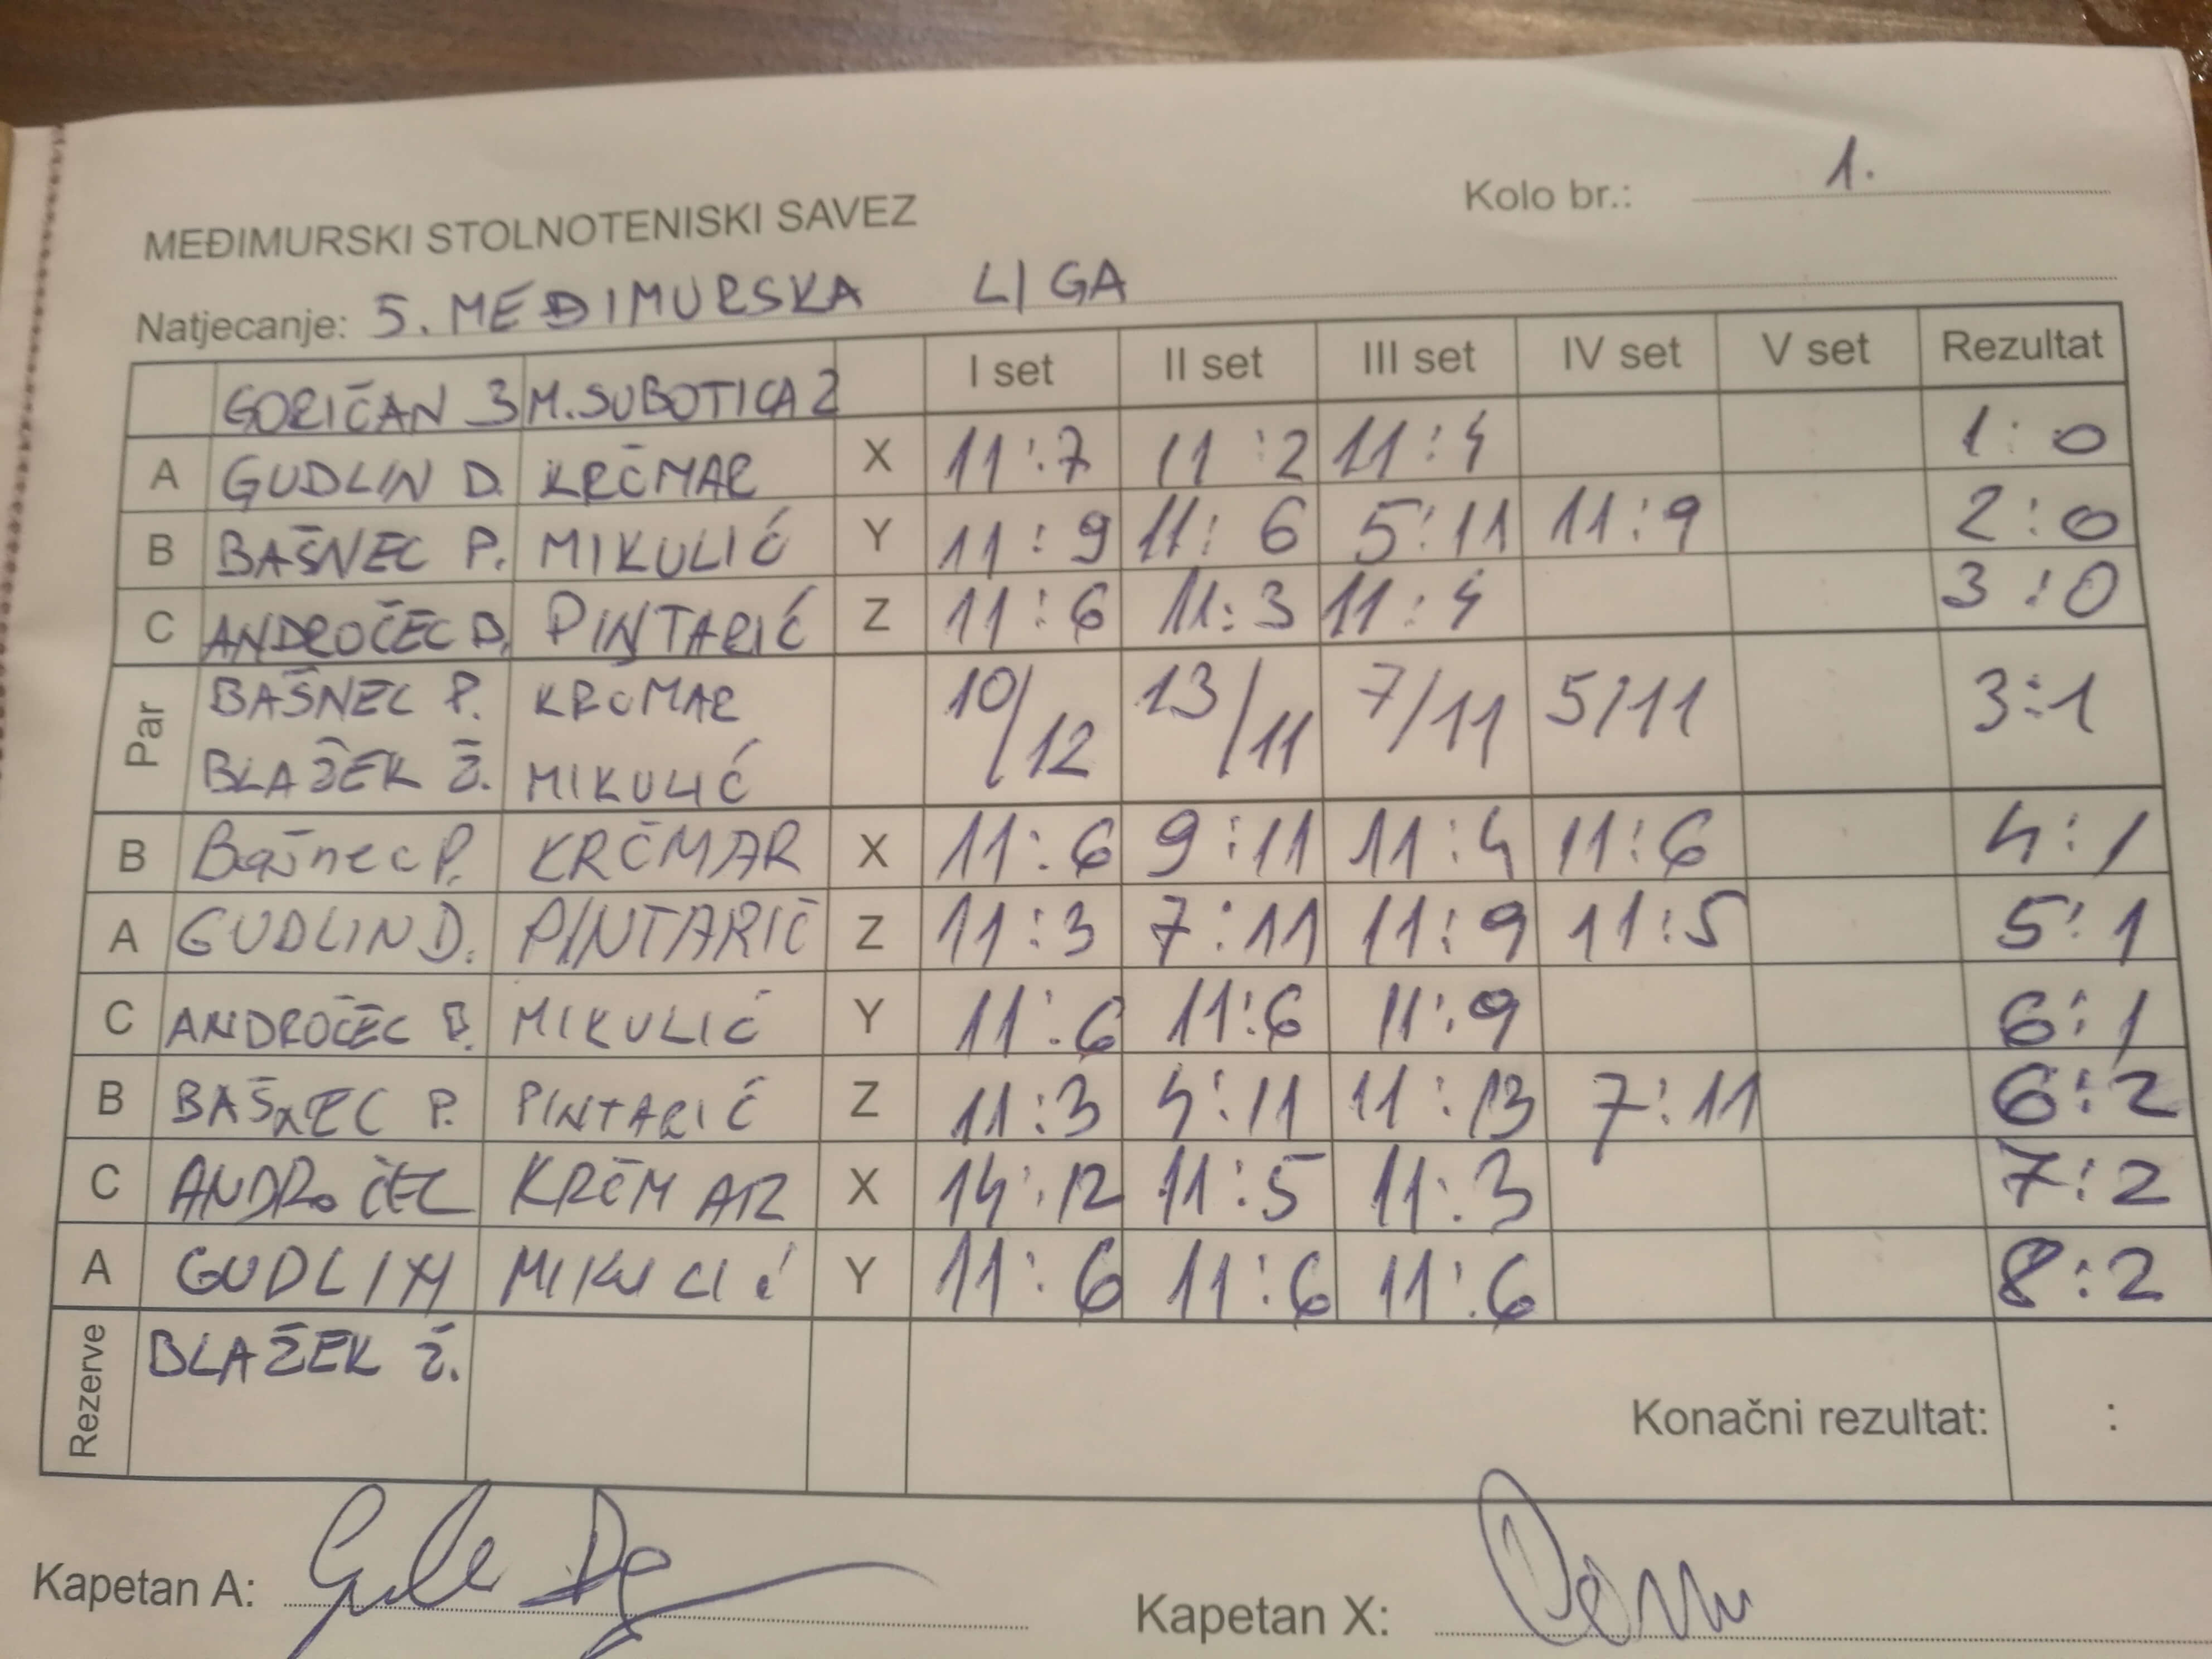 Kolo br.: 1.
MEĐIMURSKI STOLNOTENISKI SAVEZ
Natjecanje: 5. MEĐIMURSKA LIGA
GORIČAN 3 M. SUBOTICA 2 I set II set III set IV set V set Rezultat
A GUDLIN D. KRČMAR X 11:7 11:2 11:4 1:0
B BAŠNEC P. MIKULIĆ Y 11:9 11:6 5:11 11:9 2:0
C ANDROČEC D. PINTARIĆ Z 11:6 11:3 11:4 3:0
Par BAŠNEC P. KRČMAR 10/12 13/11 7/11 5/11 3:1
BLAŽEK Ž. MIKULIĆ
B Bašnec P. KRČMAR X 11:6 9:11 11:4 11:6 4:1
A GUDLIN D. PINTARIĆ Z 11:3 7:11 11:9 11:5 5:1
C ANDROČEC D. MIKULIĆ Y 11:6 11:6 11:9 6:1
B BAŠNEC P. PINTARIĆ Z 11:3 4:11 11:13 7:11 6:2
C ANDROČEC KRČMAR X 14:12 11:5 11:3 7:2
A GUDLIN MIKULIĆ Y 11:6 11:6 11:6 8:2
Rezerve BLAŽEK Ž.
Konačni rezultat: :
Kapetan A: Kapetan X: